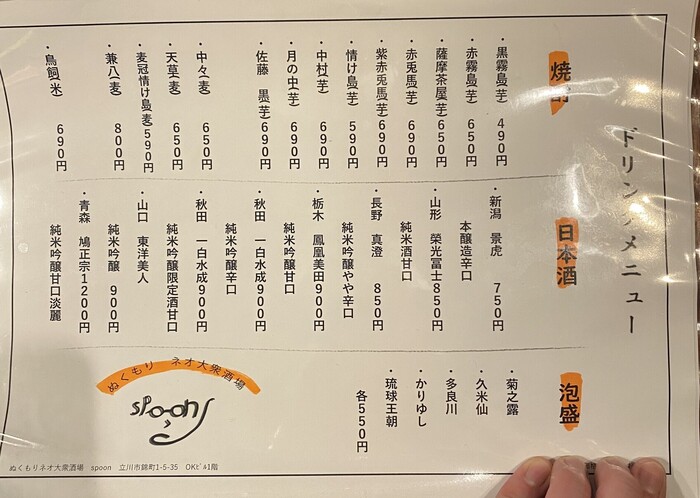 ドリンクメニュー
焼酎
・黒霧島(芋) 490円
・赤霧島(芋) 650円
・薩摩茶屋(芋) 650円
・赤兎馬(芋) 690円
・紫赤兎馬(芋) 690円
・情け島(芋) 590円
・中村(芋) 690円
・月の中(芋) 690円
・佐藤 黒(芋) 690円
・中々(麦) 650円
・天草(麦) 650円
・麦冠情け島(麦) 590円
・兼八(麦) 800円
・鳥飼(米) 690円
日本酒
・新潟 景虎 750円
本醸造辛口
・山形 榮光冨士 850円
純米酒甘口
・長野 真澄 850円
純米吟醸やや辛口
・栃木 鳳凰美田 900円
純米吟醸甘口
・秋田 一白水成 900円
純米吟醸辛口
・秋田 一白水成 900円
純米吟醸限定酒甘口
・山口 東洋美人
純米吟醸 900円
・青森 鳩正宗 1200円
純米吟醸甘口淡麗
泡盛
・菊之露
・久米仙
・多良川
・かりゆし
・琉球王朝
各550円
ぬくもり ネオ大衆酒場
spoon
ぬくもりネオ大衆酒場 spoon 立川市錦町1-5-35 OKビル1階